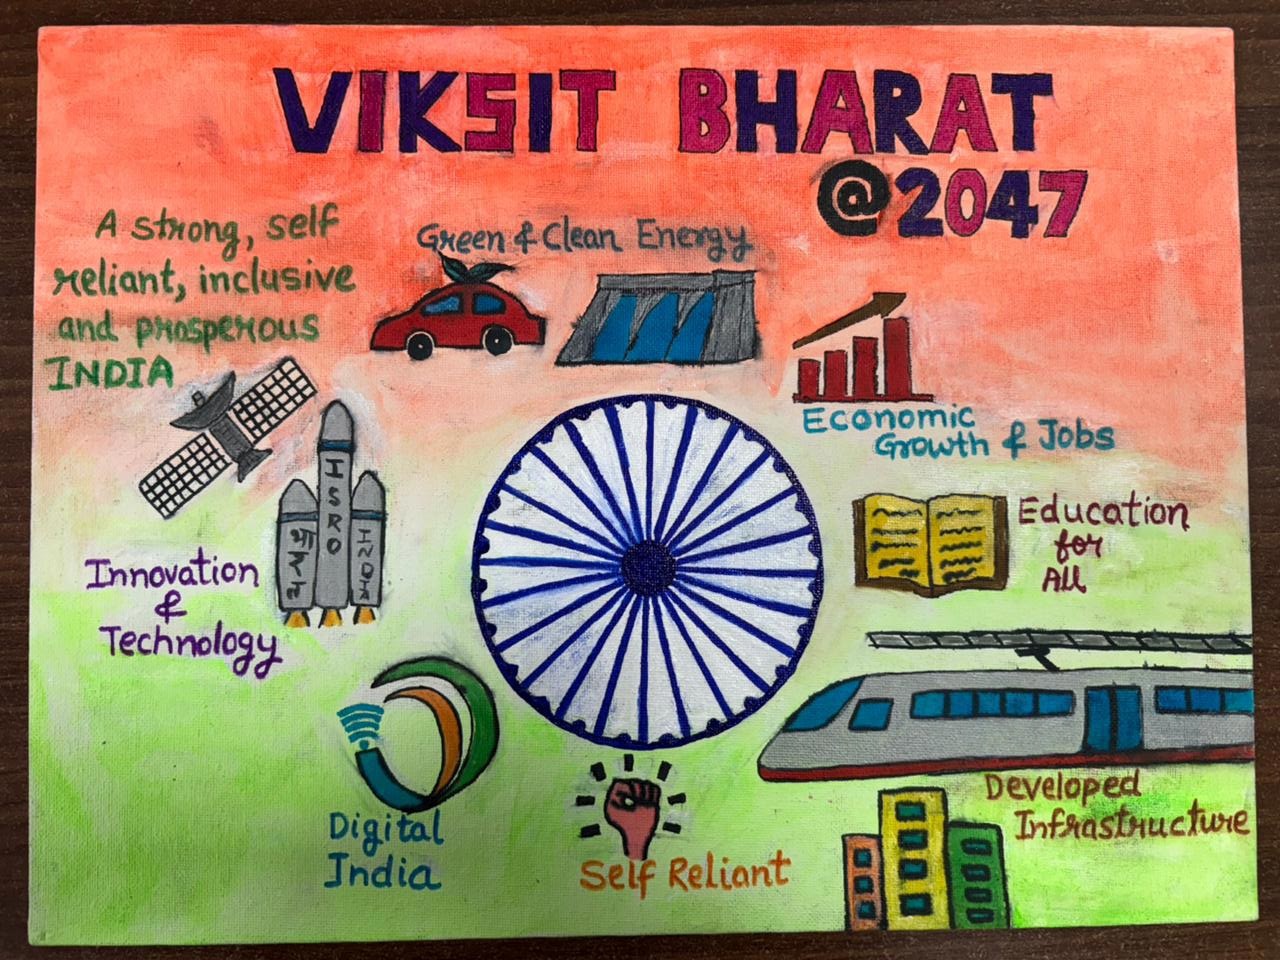 VIKSIT BHARAT
@2047
A strong, self
reliant, inclusive
and prosperous
INDIA
Green & Clean Energy
Economic
Growth & Jobs
Education
for
All
ISRO
भारत
INDIA
Innovation
&
Technology
Digital
India
Self Reliant
Developed
Infrastructure